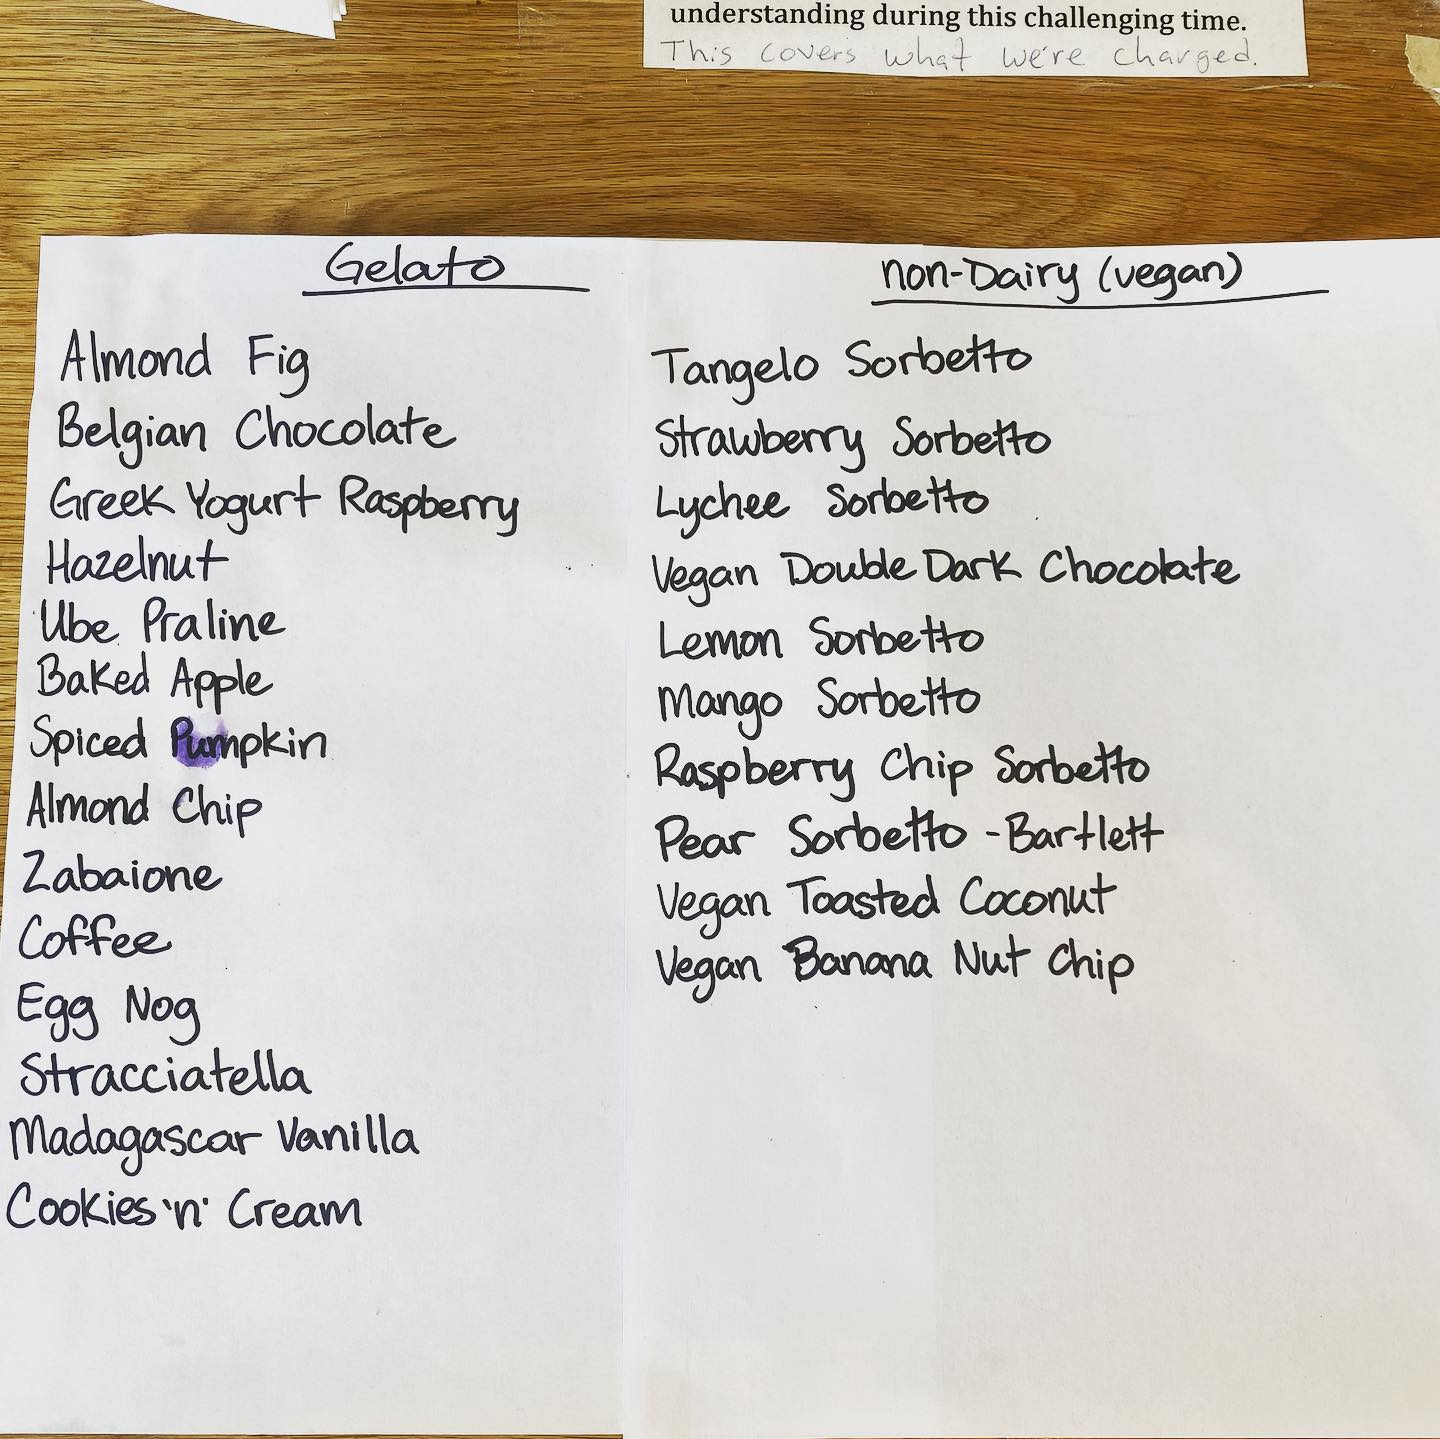 understanding during this challenging time.
This covers what we're charged.
Gelato
Almond Fig
Belgian Chocolate
Greek Yogurt Raspberry
Hazelnut
Ube Praline
Baked Apple
Spiced Pumpkin
Almond Chip
Zabaione
Coffee
Egg Nog
Stracciatella
Madagascar Vanilla
Cookies 'n' Cream
non-Dairy (vegan)
Tangelo Sorbetto
Strawberry Sorbetto
Lychee Sorbetto
Vegan Double Dark Chocolate
Lemon Sorbetto
Mango Sorbetto
Raspberry Chip Sorbetto
Pear Sorbetto - Bartlett
Vegan Toasted Coconut
Vegan Banana Nut Chip